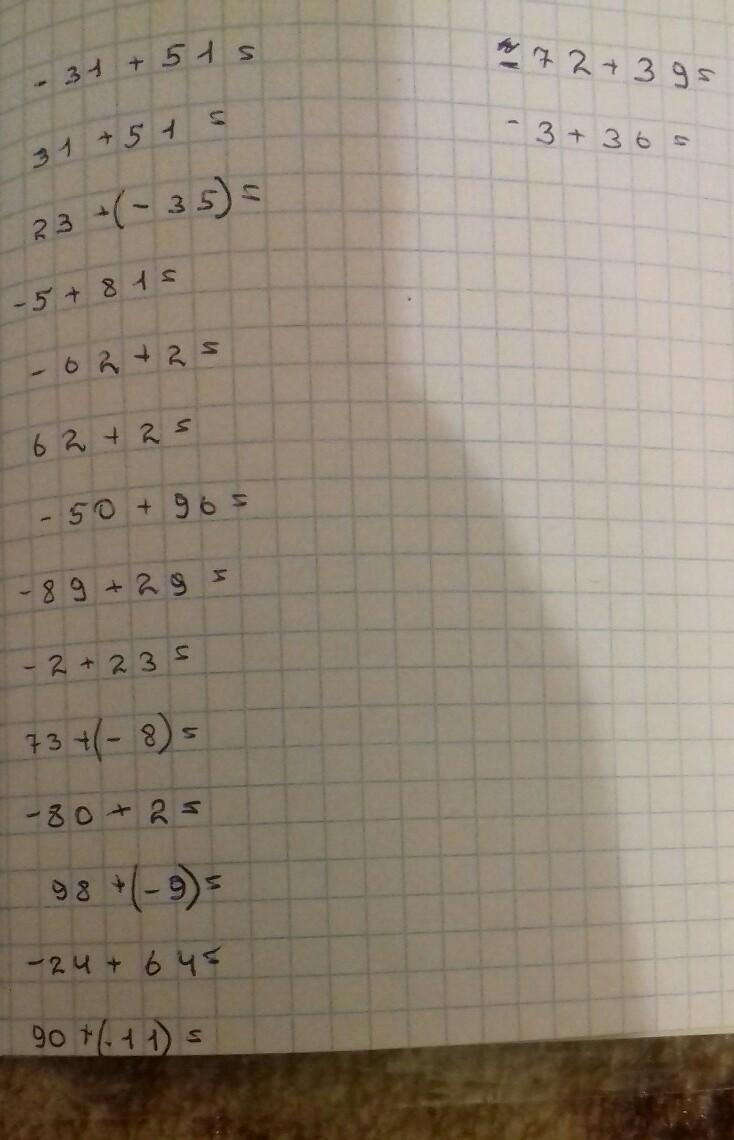 -31+51=
31+51=
23+(-35)=
-5+81=
-62+2=
62+2=
-50+96=
-89+29=
-2+23=
73+(-8)=
-80+2=
98+(-9)=
-24+64=
90+(-11)=
-72+39=
-3+36=